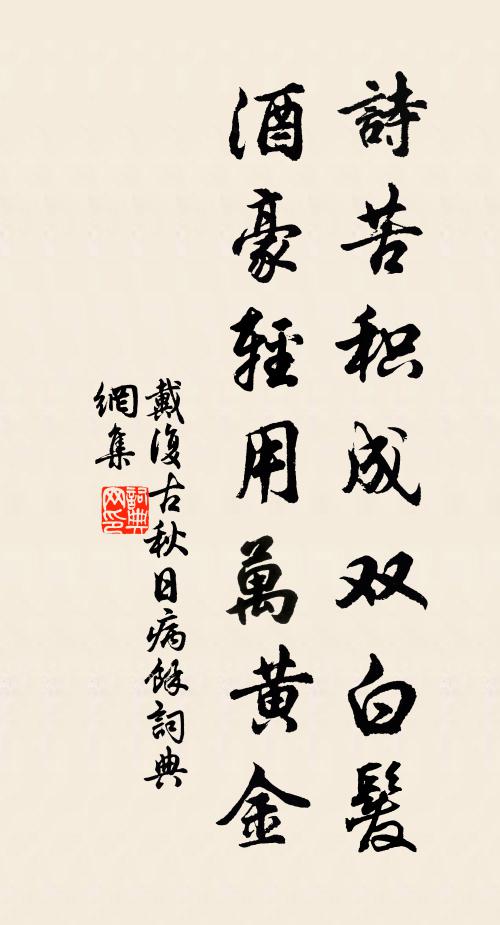 詩苦积成双白髮
酒豪輕用萬黄金
戴復古秋日病餘詞典
網集
詞典
网印